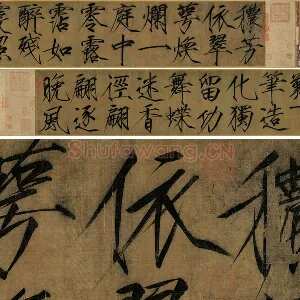 穠芳
依翠
萼煥
爛一
庭中
零露
霑如
醉殘
筆造
化獨
留功
舞蝶
迷香
徑翩
翩逐
晚風
Shufawang.CN
穠
依
萼